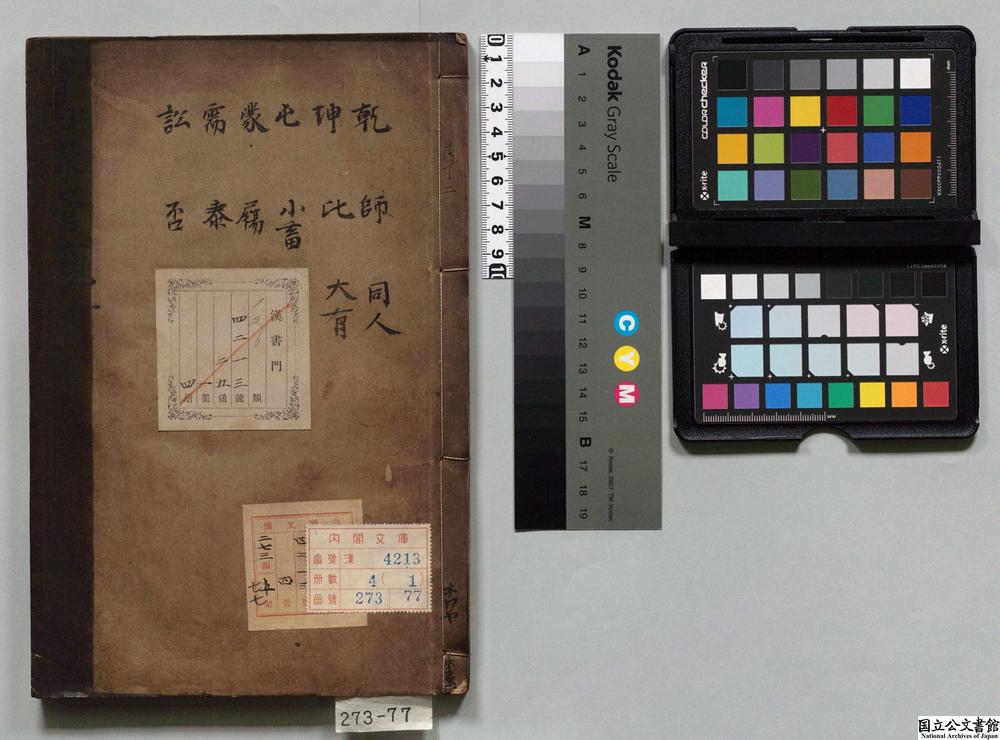 乾坤屯蒙需訟
師比小畜履泰否
同人大有
漢書門
類
四二一三號
函
一架
四冊
內閣文庫
番號 漢 4213
冊數 4(1)
函號 273 77
273-77
0 1 2 3 4 5 6 7 8 9 10
Kodak Gray Scale
A 1 2 3 4 5 6 M 8 9 10 11 12 13 14 15 B 17 18 19
C Y M
© Kodak, 2007 TM: Kodak
colorchecker
x-rite
mm
x-rite
mm
国立公文書館
National Archives of Japan